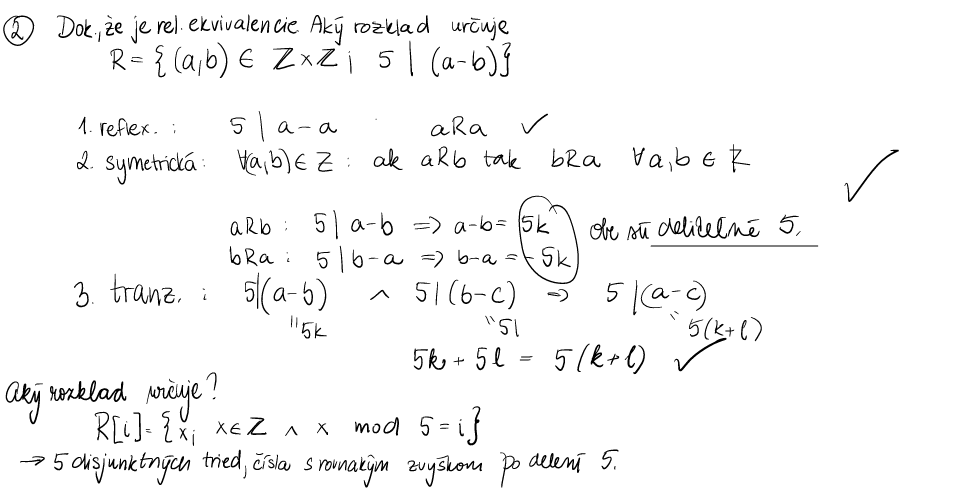 ② Dok., že je rel. ekvivalencie Aký rozklad určuje
R = { (a,b) ∈ ℤ×ℤ ; 5 | (a-b)}
1. reflex. : 5 | a-a aRa ✓
2. symetrická: ∀(a,b) ∈ Z : ak aRb tak bRa ∀a,b ∈ R ✓
aRb : 5 | a-b => a-b = 5k obe sú deliteľné 5.
bRa : 5 | b-a => b-a = -5k
3. tranz. : 5|(a-b) ∧ 5|(b-c) => 5 |(a-c)
"5k "5l "5(k+l)
5k + 5l = 5(k+l) ✓
Aký rozklad určuje?
R[i] = {x; x∈Z ∧ x mod 5 = i}
→ 5 disjunktných tried, čísla s rovnakým zvyškom po delení 5.